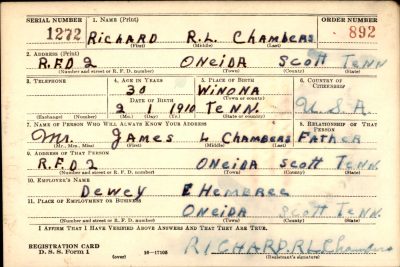 SERIAL NUMBER 1. NAME (Print) ORDER NUMBER
1272 RICHARD R.L. Chambers 892
(First) (Middle) (Last)
2. ADDRESS (Print)
R.F.D 2 ONEIDA SCOTT TENN
(Number and street or R. F. D. number) (Town) (County) (State)
3. TELEPHONE 4. AGE IN YEARS 5. PLACE OF BIRTH 6. COUNTRY OF CITIZENSHIP
30 WINONA
DATE OF BIRTH (Town or county)
2 1 1910 TENN. U.S.A.
(Exchange) (Number) (Mo.) (Day) (Yr.) (State or country)
7. NAME OF PERSON WHO WILL ALWAYS KNOW YOUR ADDRESS 8. RELATIONSHIP OF THAT PERSON
Mr. JAMES L CHAMBERS FATHER
(Mr., Mrs., Miss) (First) (Middle) (Last)
9. ADDRESS OF THAT PERSON
R.F.D 2 ONEIDA SCOTT TENN.
(Number and street or R. F. D. number) (Town) (County) (State)
10. EMPLOYER'S NAME
DEWEY E HEMBREE
11. PLACE OF EMPLOYMENT OR BUSINESS
ONEIDA SCOTT TENN.
(Number and street or R. F. D. number) (Town) (County) (State)
I AFFIRM THAT I HAVE VERIFIED ABOVE ANSWERS AND THAT THEY ARE TRUE.
REGISTRATION CARD
D. S. S. Form 1 (over) 16—17105 RICHARD.R.L Chambers
(Registrant's signature)